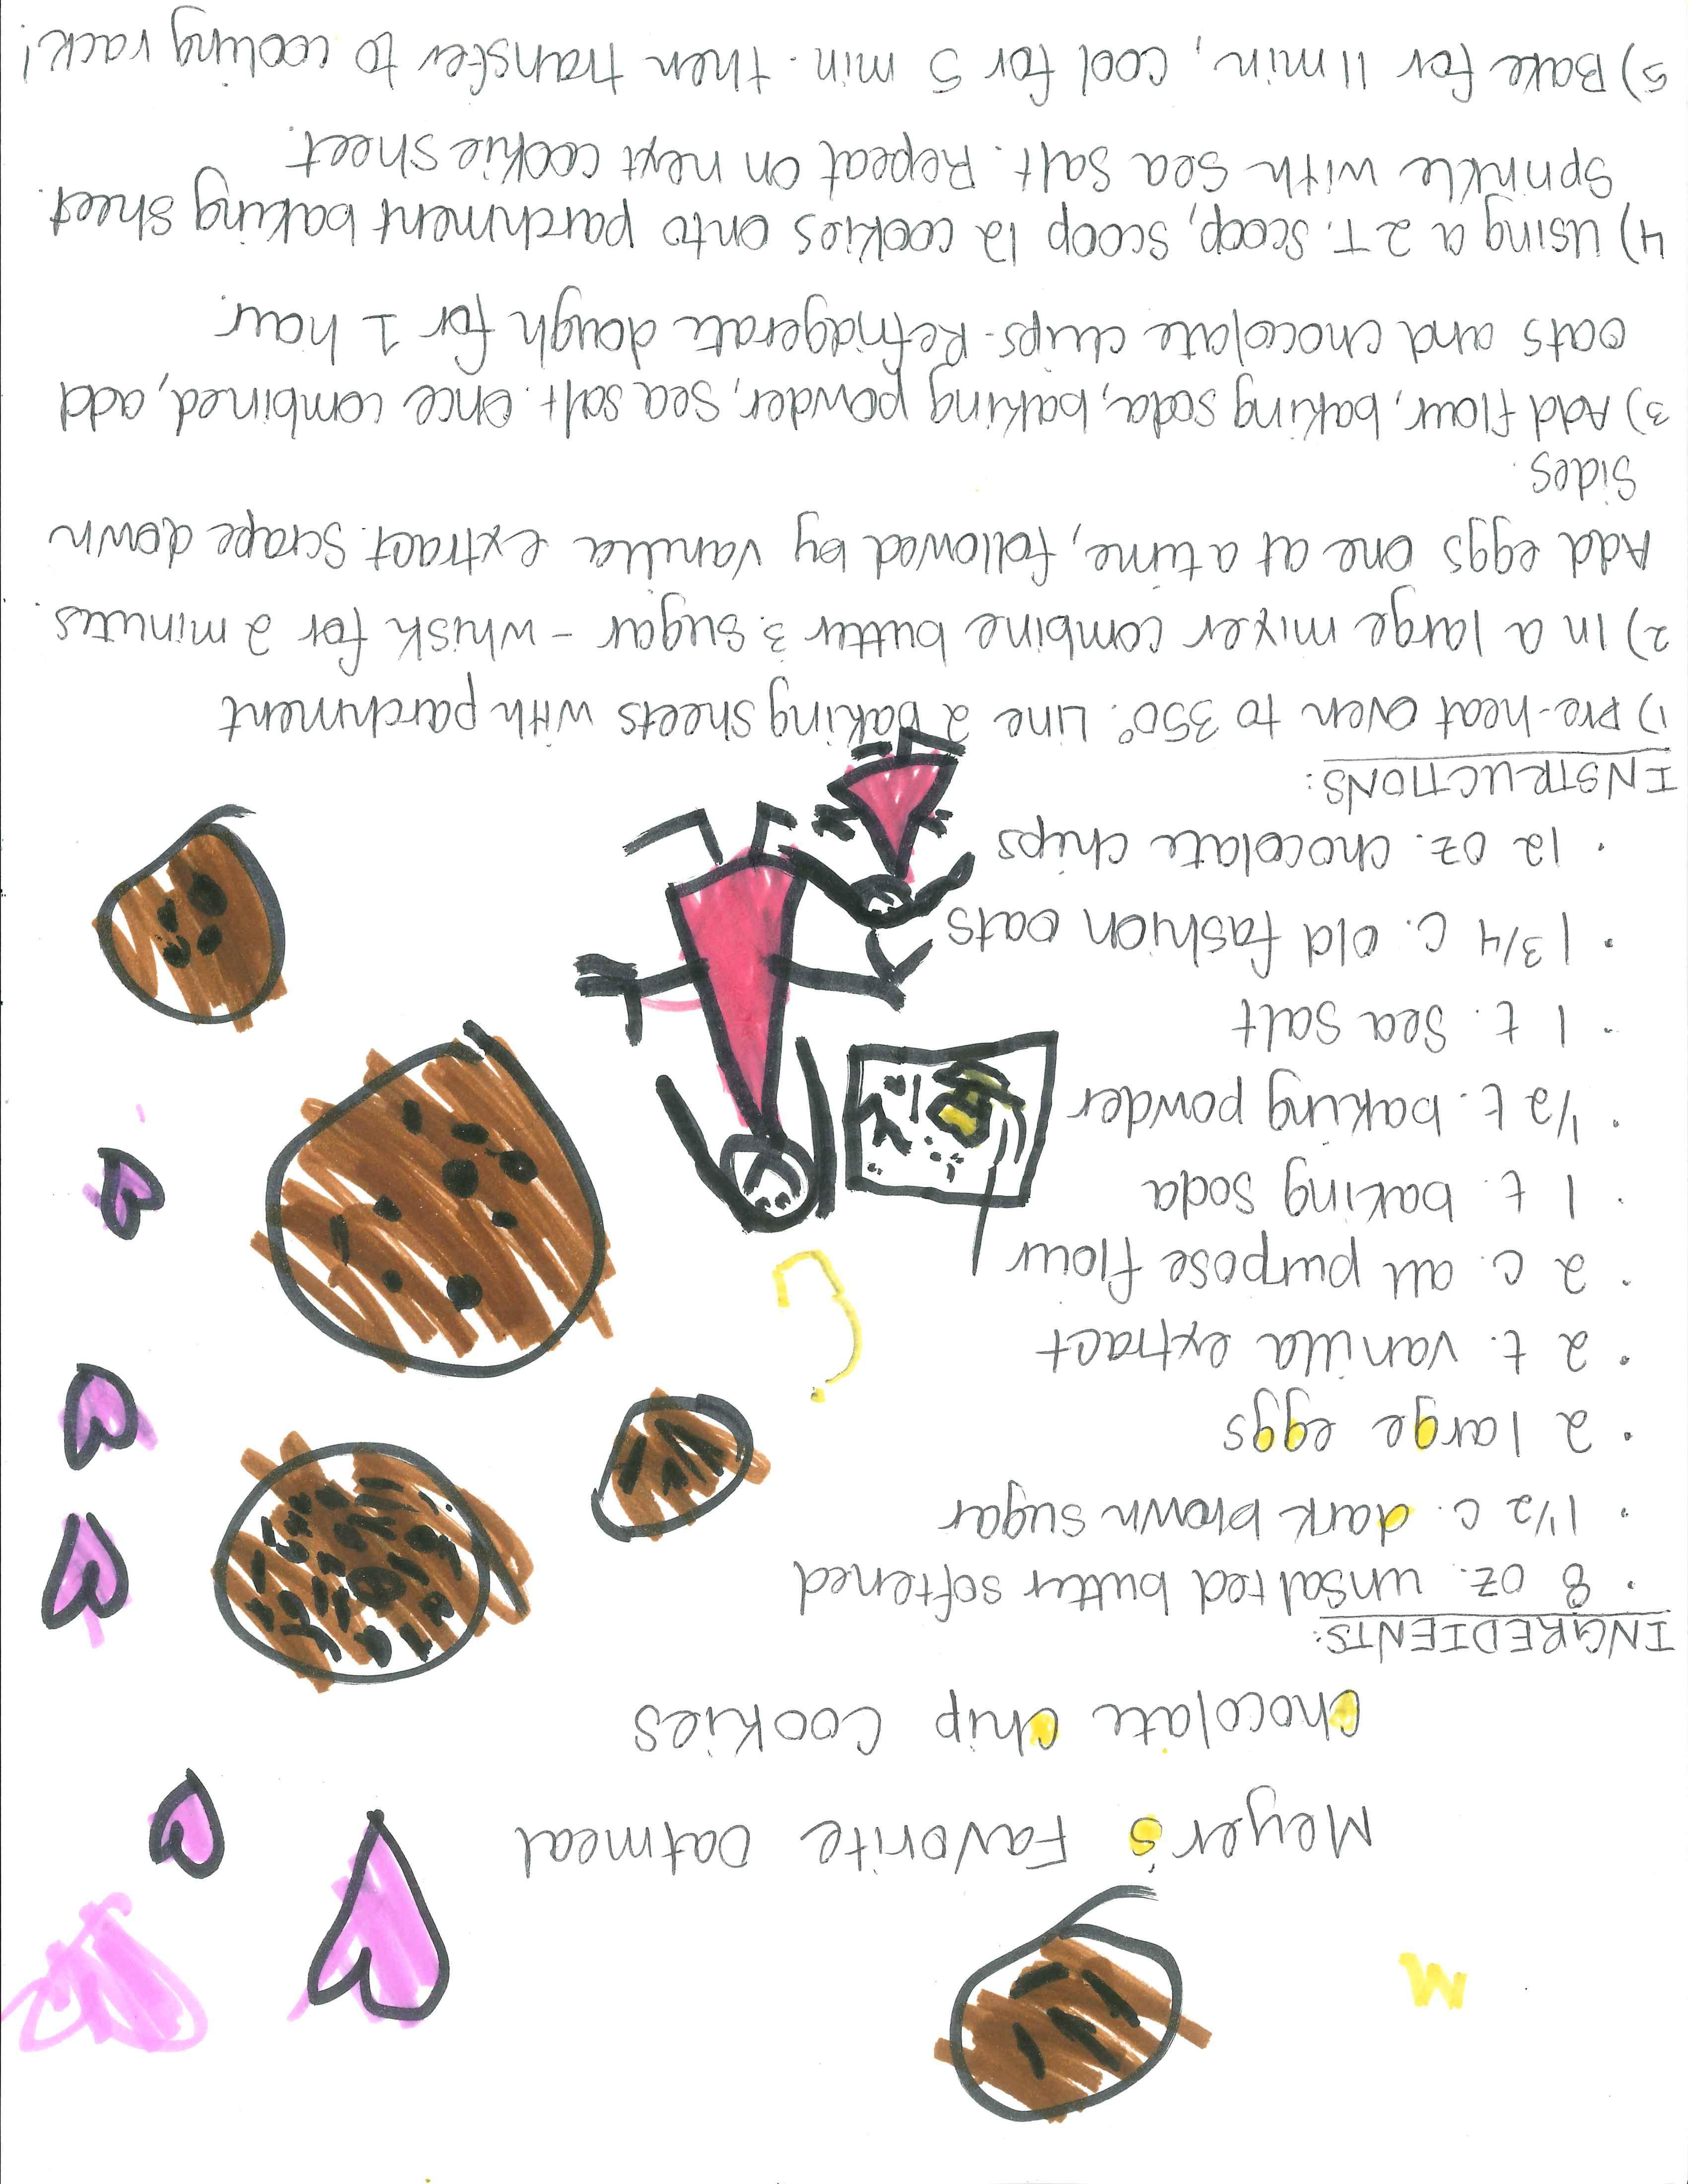 Meyer's Favorite Oatmeal
Chocolate Chip Cookies
INGREDIENTS:
• 8 oz. unsalted butter softened
• 1 1/2 c. dark brown sugar
• 2 large eggs
• 2 t. vanilla extract
• 2 c. all purpose flour
• 1 t. baking soda
• 1/2 t. baking powder
• 1 t. Sea Salt
• 1 3/4 c. old fashion oats
• 12 oz. chocolate chips
INSTRUCTIONS:
1) Pre-heat oven to 350°. Line 2 baking sheets with parchment
2) In a large mixer combine butter & sugar - whisk for 2 minutes.
Add eggs one at a time, followed by vanilla extract. Scrape down
Sides.
3) Add flour, baking soda, baking powder, sea salt. Once combined, add
oats and chocolate chips. Refridgerate dough for 1 hour.
4) Using a 2 T. Scoop, scoop 12 cookies onto parchment baking sheet.
Sprinkle with sea salt. Repeat on next cookie sheet.
5) Bake for 11 min, cool for 5 min. then transfer to cooling rack!